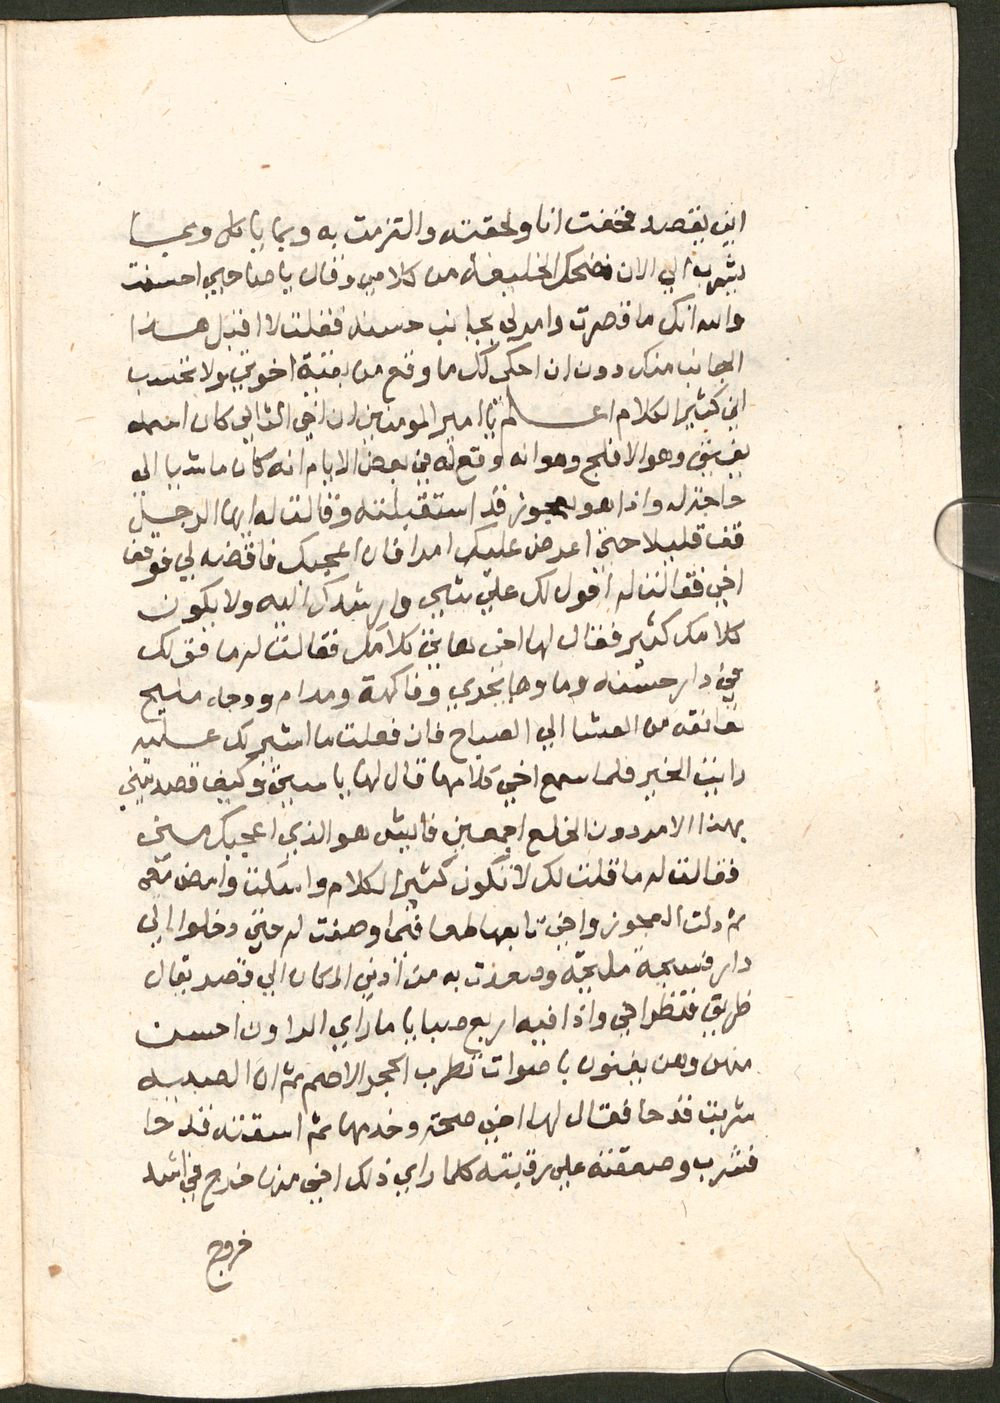 اين يقصد فخفت انا ولحقته والتزمت به وبما ياكل وبما
يشرب الي الان فضحك الخليفة من كلامي وقال يا صاحبي احسنت
والله انك ما قصرت وامر لي بجايزه حسنه فقلت لا اقبل هذا
الجايزه منك دون ان احكي لك ما وقع من بقية اخوتي ولا تحسب
اني كثير الكلام اعلم يا امير المومنين ان اخي الثاني كان اسمه
بقبق وهو الافلج وهو انه وقع له في بعض الايام انه كان ماشيا الي
حاجته واذا هو بعجوز قد استقبلته وقالت له ايها الرجل
قف قليلا حتي اعرض عليك امرا فان اعجبك فاقضه لي فوقف
اخي فقالت له اقول لك علي شي وارشدك اليه ولا يكون
كلامك كثير فقال لها اخي هاتي كلامك فقالت له ما قولك
في دار حسنه وماوها يجري وفاكهة ومدام ووجه مليح
تعانقه من العشا الي الصباح فان فعلت ما اشير لك عليه
رايت الخير فلما سمع اخي كلامها قال لها يا ستي وكيف قصدتيني
بهذا الامر دون الخلق اجمعين فايش هو الذي اعجبك مني
فقالت له ما قلت لك لا تكون كثير الكلام واسكت وامض معي
ثم ولت العجوز واخي تابعها طمعا فيما وصفت له حتي دخلوا الي
دار فسيحة مليحة وصعدت به من ادني المكان الي قصر يقال
ظريف فنظر اخي واذا فيه اربع صبايا ما راي الراون احسن
منهن وهن يغنون باصوات تطرب الحجر الاصم ثم ان الصبيه
شربت قدحا فقال لها اخي صحة وخدمها ثم اسقته قدحا
فشرب وصفعته علي رقبته فلما راي ذلك اخي منها خرج في اشد
خروج